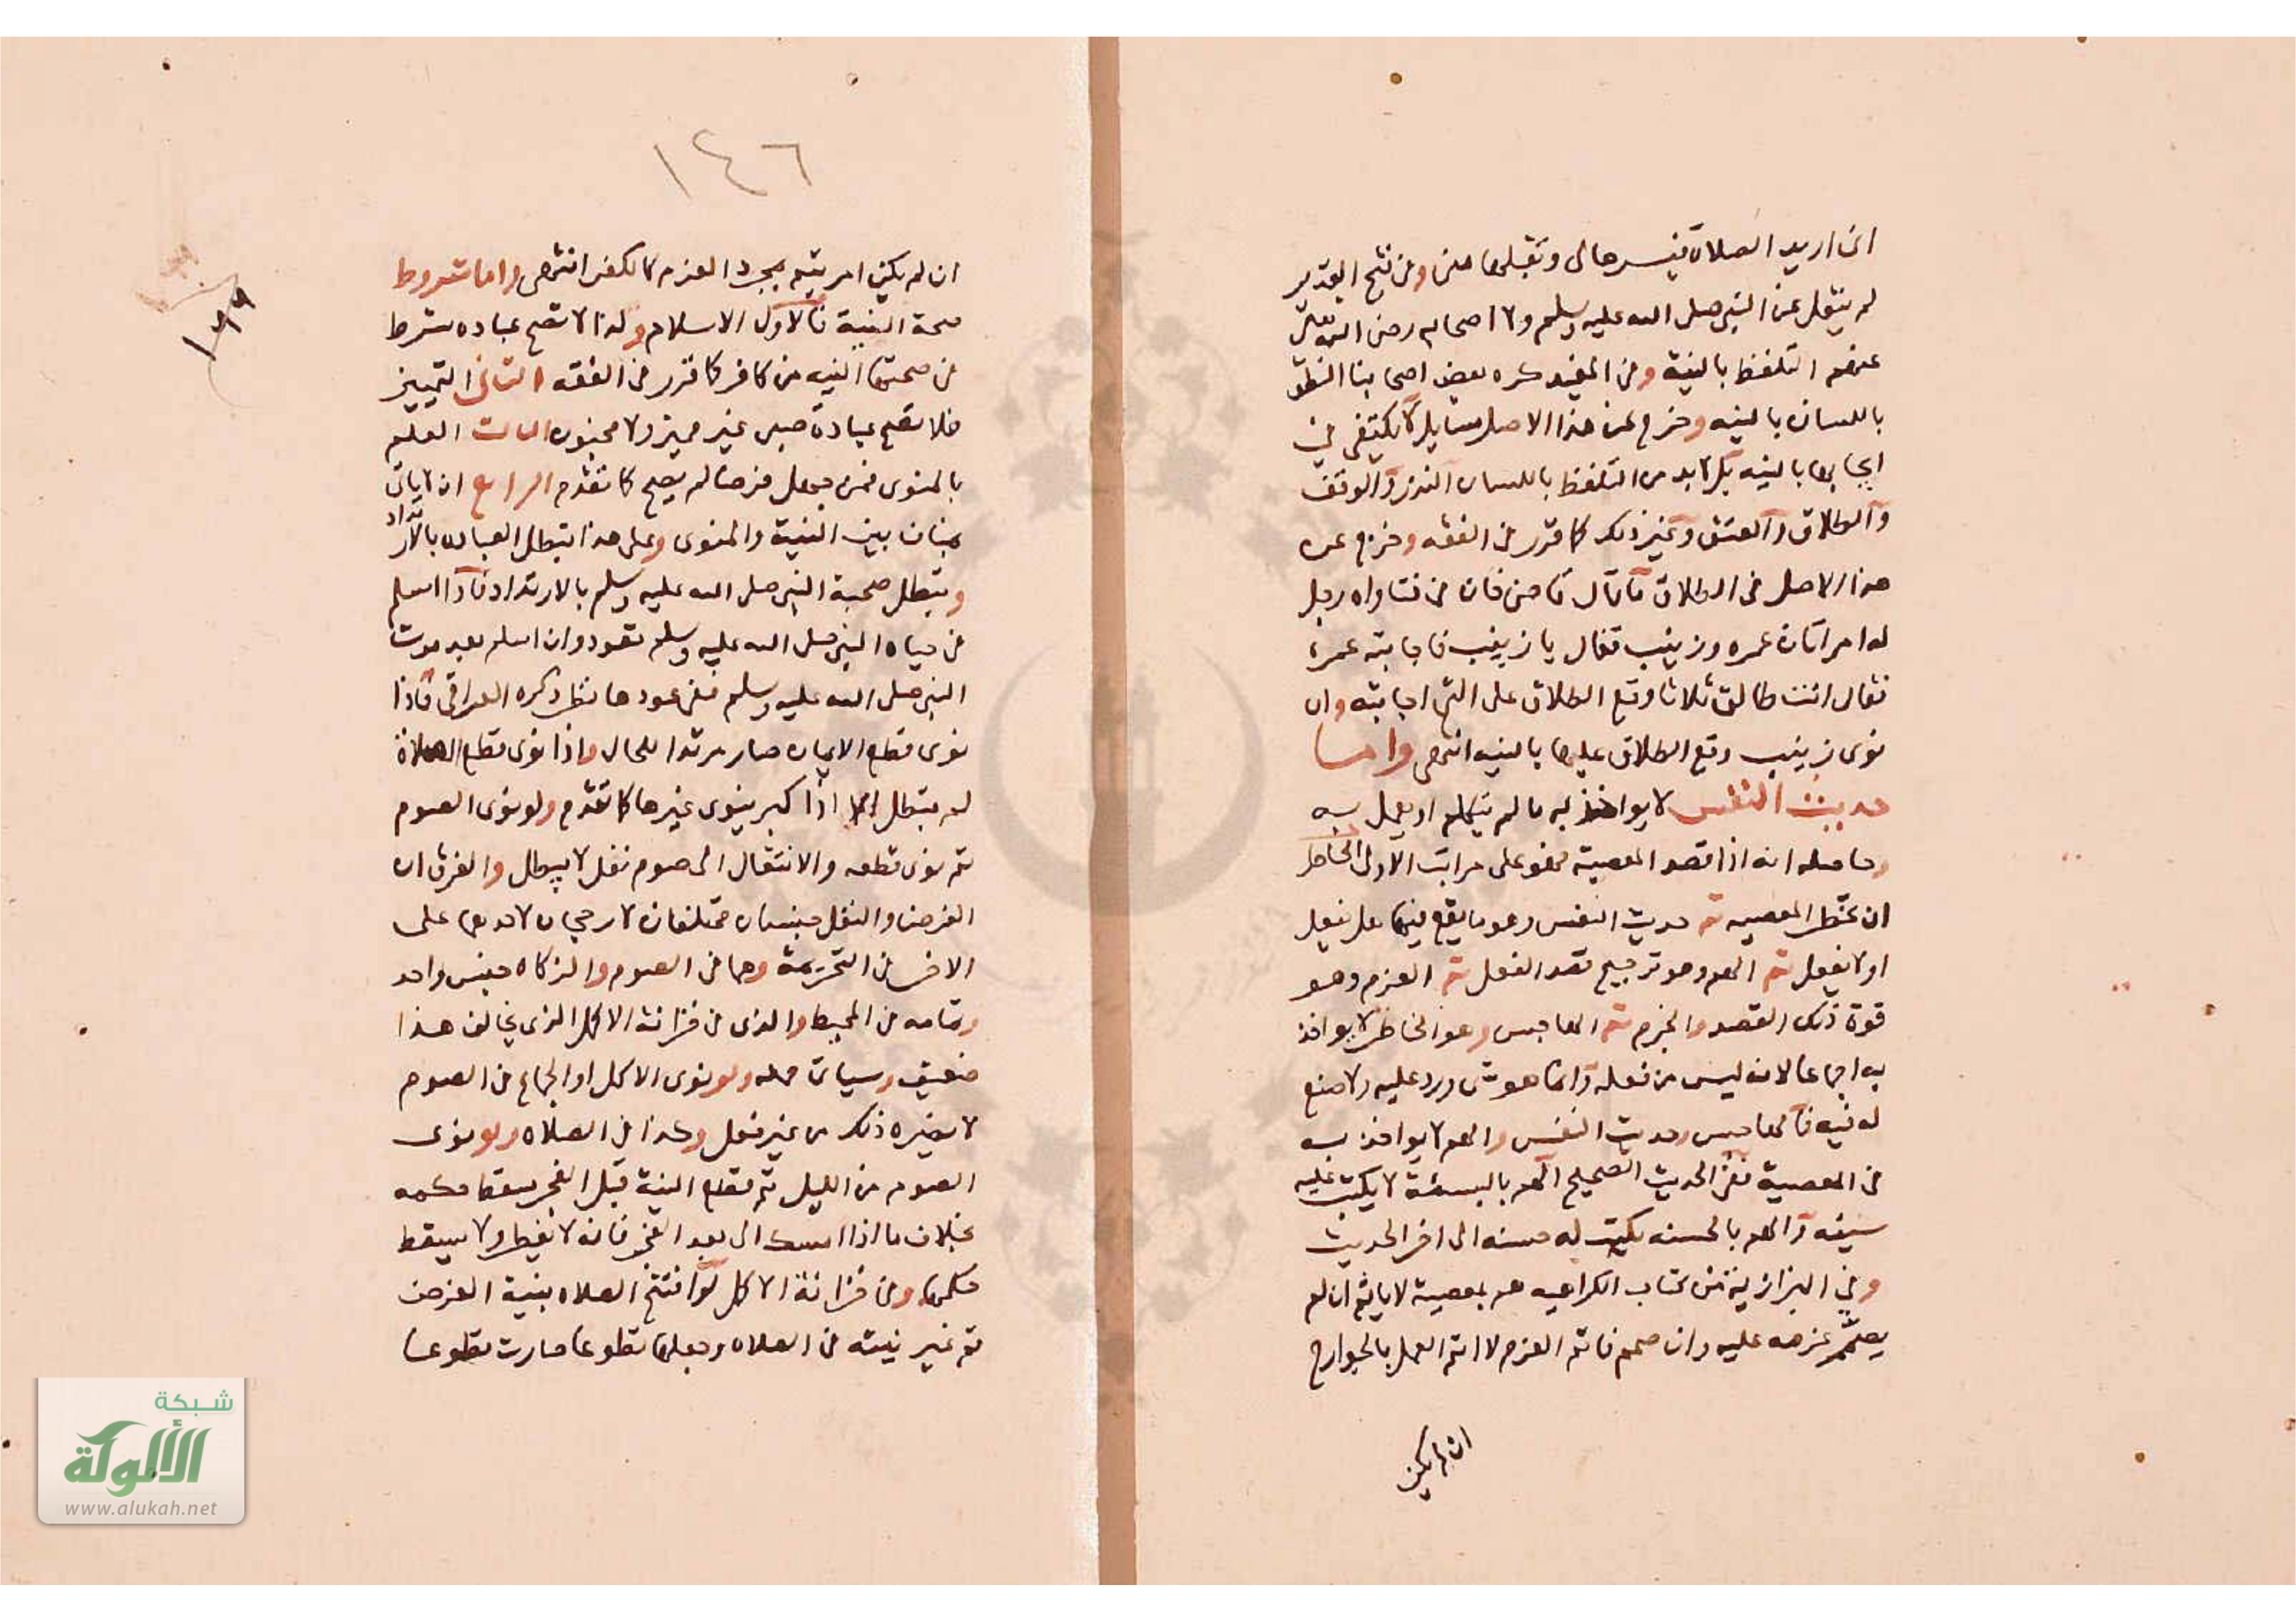 انى اريد الصلاة فيسرها لى وتقبلها منى وفى فتح القدير
لم ينقل عن النبى صلى الله عليه وسلم ولا اصحابه رضى الله تعالى
عنهم التلفظ بالنية وفى المفيد كره بعض اصحابنا النطق
باللسان بالنيه وخرج عن هذا الاصل مسايل لا يكتفى فى
ايجابها بالنيه بل لا بد من التلفظ باللسان النذر والوقف
والطلاق والعتق وغير ذلك كما قرر فى الفقه وخرج عن
هذا الاصل فى الطلاق ما قال قاضى خان فى فتاواه رجل
له امراتان عمره وزينب فقال يا زينب فاجابته عمرة
فقال انت طالق ثلاثا وقع الطلاق على التى اجابته وان
نوى زينب وقع الطلاق عليها بالنيه انتهى واما
حديث النفس لا يواخذ به ما لم يتكلم او يعمل به
وحاصله انه اذا قصد المعصية فهو على مراتب الاولى الخاطر
ان يخطر المعصيه ثم حديث النفس وهو ما يقع فيها هل يفعل
او لا يفعل ثم الهم وهو ترجيح قصد الفعل ثم العزم وهو
قوة ذلك القصد والجزم ثم الهاجس وهو الخاطر لا يواخذ
به اجماعا لانه ليس من فعله وانما هو شى ورد عليه ولا صنع
له فيه فالهاجس وحديث النفس والهم لا يواخذ به
فى المعصية ففى الحديث الصحيح الهم بالسيئة لا يكتب عليه
سيئه والهم بالحسنه يكتب له حسنه الى اخر الحديث
وفى البزازية من كتاب الكراهيه هم بمعصية لا ياثم ان لم
يصمم عزمه عليه وان صمم فاثم العزم لا اثم العمل بالجوارح
ان لم يكن
١٤٦
ان لم يكن امر يتم بمجرد العزم كالكفر انتهى واما شروط
صحة النية فالاول الاسلام ولذا لا تصح عباده شرط
فى صحتها النيه من كافر كما قرر فى الفقه الثانى التمييز
فلا تصح عبادة صبى غير مميز ولا مجنون الثالث العلم
بالمنوى فمن جهل فرضا لم يصح كما تقدم الرابع ان لا ياتى
بمناف بين النية والمنوى وعلى هذا تبطل العباده بالارتداد
وتبطل صحبة النبى صلى الله عليه وسلم بالارتداد فاذا اسلم
فى حياه النبى صلى الله عليه وسلم تعود وان اسلم بعد موت
النبى صلى الله عليه وسلم ففى عودها نظر ذكره العراقى فاذا
نوى قطع الايمان صار مرتدا للحال واذا نوى قطع الصلاة
لم تبطل الا اذا كبر ينوى غيرها كما تقدم ولو نوى الصوم
ثم نوى قطعه والانتقال الى صوم نفل لا يبطل والفرق ان
الفرض والنفل جنسان مختلفان لا رجحان لاحدهما على
الاخر فى التحريمة وهما فى الصوم والزكاه جنس واحد
وتمامه فى المحيط والذى فى خزانة الاكمل الذى يخالف هذا
ضعيف وسياتى محله ولو نوى الاكل او الجماع فى الصوم
لا يضره ذلك من غير فعل وكذا فى الصلاه ولو نوى
الصوم من الليل ثم قطع النية قبل الفجر سقط حكمه
بخلاف ما اذا امسك الى بعد الفجر فانه لا يفيد ولا يسقط
حكمها وفى خزانة الاكمل لو افتتح الصلاه بنية الفرض
ثم غير نيته فى الصلاه وجعلها تطوعا صارت تطوعا
شبكة
الألوكة
www.alukah.net